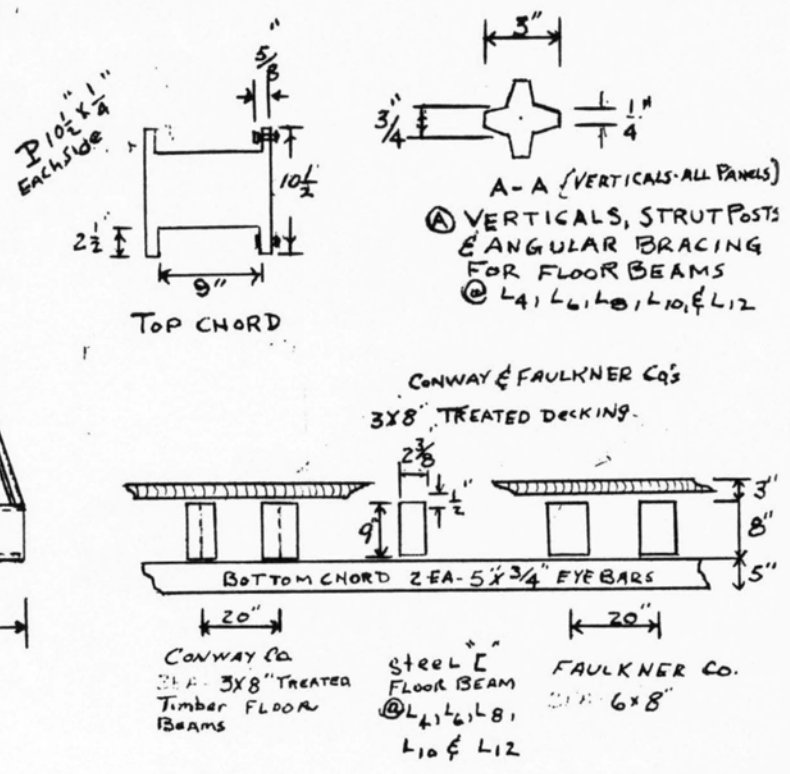 5/8"
3"
P 10 1/2" x 1/4"
EACH SIDE
10 1/2
2 1/2"
9"
TOP CHORD
3/4"
1/4"
A-A (VERTICALS-ALL PANELS)
Ⓐ VERTICALS, STRUT POSTS
& ANGULAR BRACING
FOR FLOOR BEAMS
@ L4, L6, L8, L10, & L12
CONWAY & FAULKNER CO'S
3X8" TREATED DECKING.
2 3/8
1/2"
3"
9"
8"
BOTTOM CHORD 2 EA- 5"X 3/4" EYE BARS
5"
20"
20"
CONWAY CO
3X8" TREATED
Timber FLOOR
BEAMS
Steel "[" 
FLOOR BEAM
@ L4, L6, L8,
L10 & L12
FAULKNER CO.
6x8"